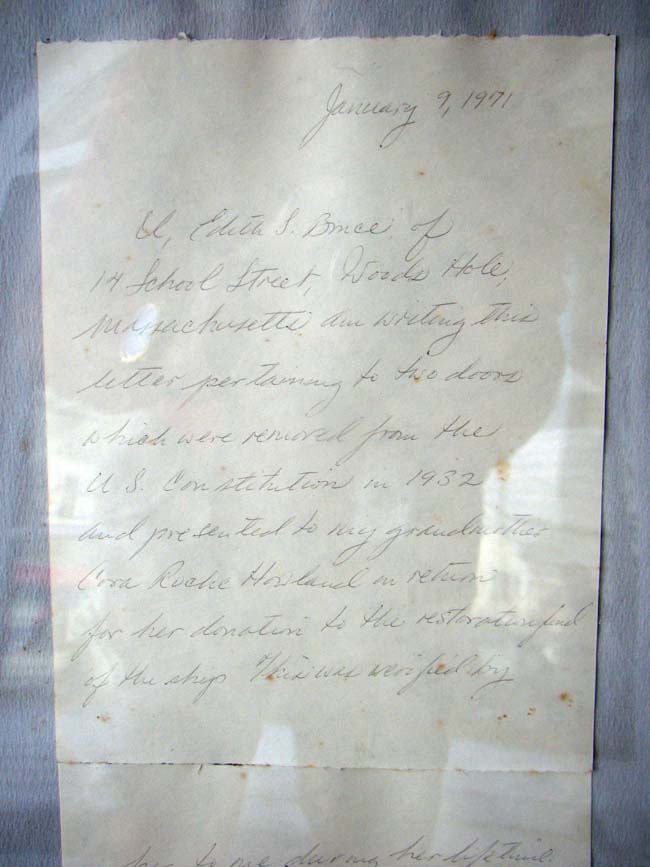 January 9, 1971
I, Edith S. Bruce of
14 School Street, Woods Hole,
Massachusetts am writing this
letter pertaining to two doors
which were removed from the
U S. Constitution in 1932
and presented to my grandmother
Cora Roche Howland in return
for her donation to the restoration fund
of the ship This was verified by
her to me during her lifetime.